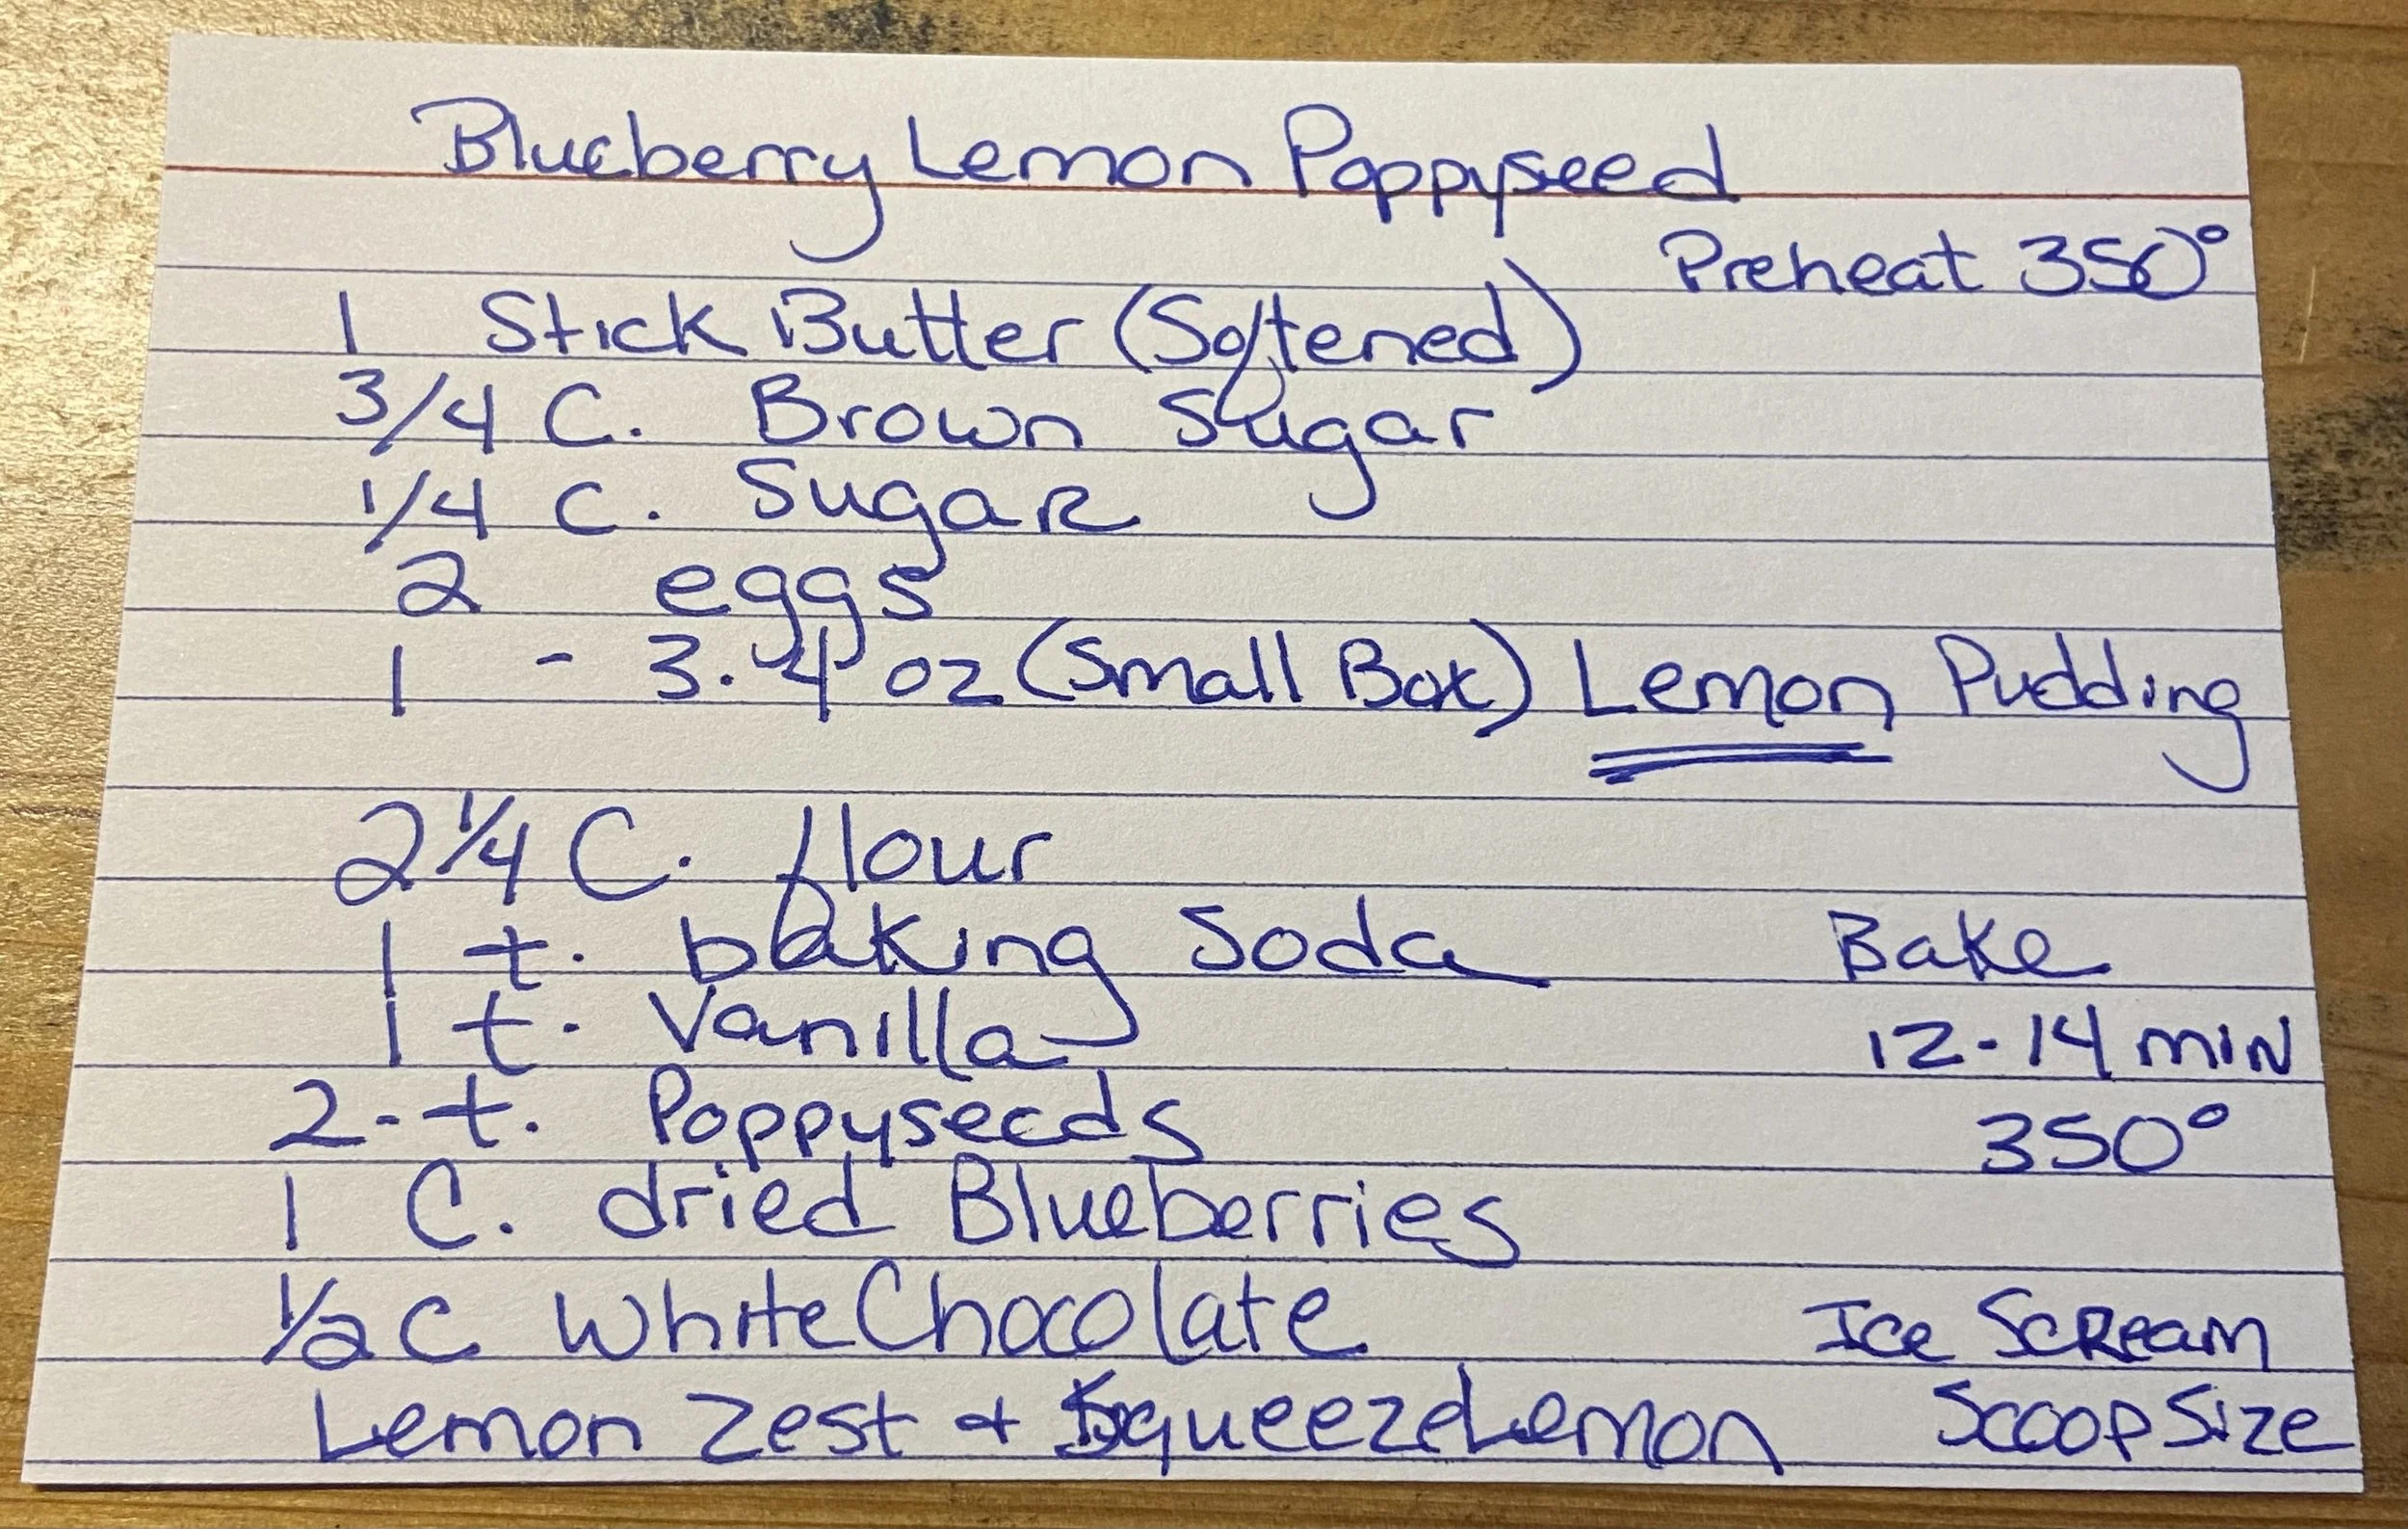 Blueberry Lemon Poppyseed
Preheat 350°
1 Stick Butter (Softened)
3/4 C. Brown Sugar
1/4 C. Sugar
2 eggs
1 - 3.4 oz (Small Box) Lemon Pudding
2 1/4 C. flour
1 t. baking Soda
Bake
1 t. Vanilla
12-14 min
2-t. Poppyseeds
350°
1 C. dried Blueberries
1/2 C White Chocolate
Ice Scream
Lemon Zest + Squeeze Lemon
Scoop Size